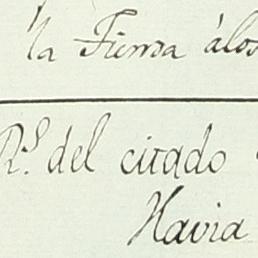 la Tierra álos
R.ˢ del citado
Havia